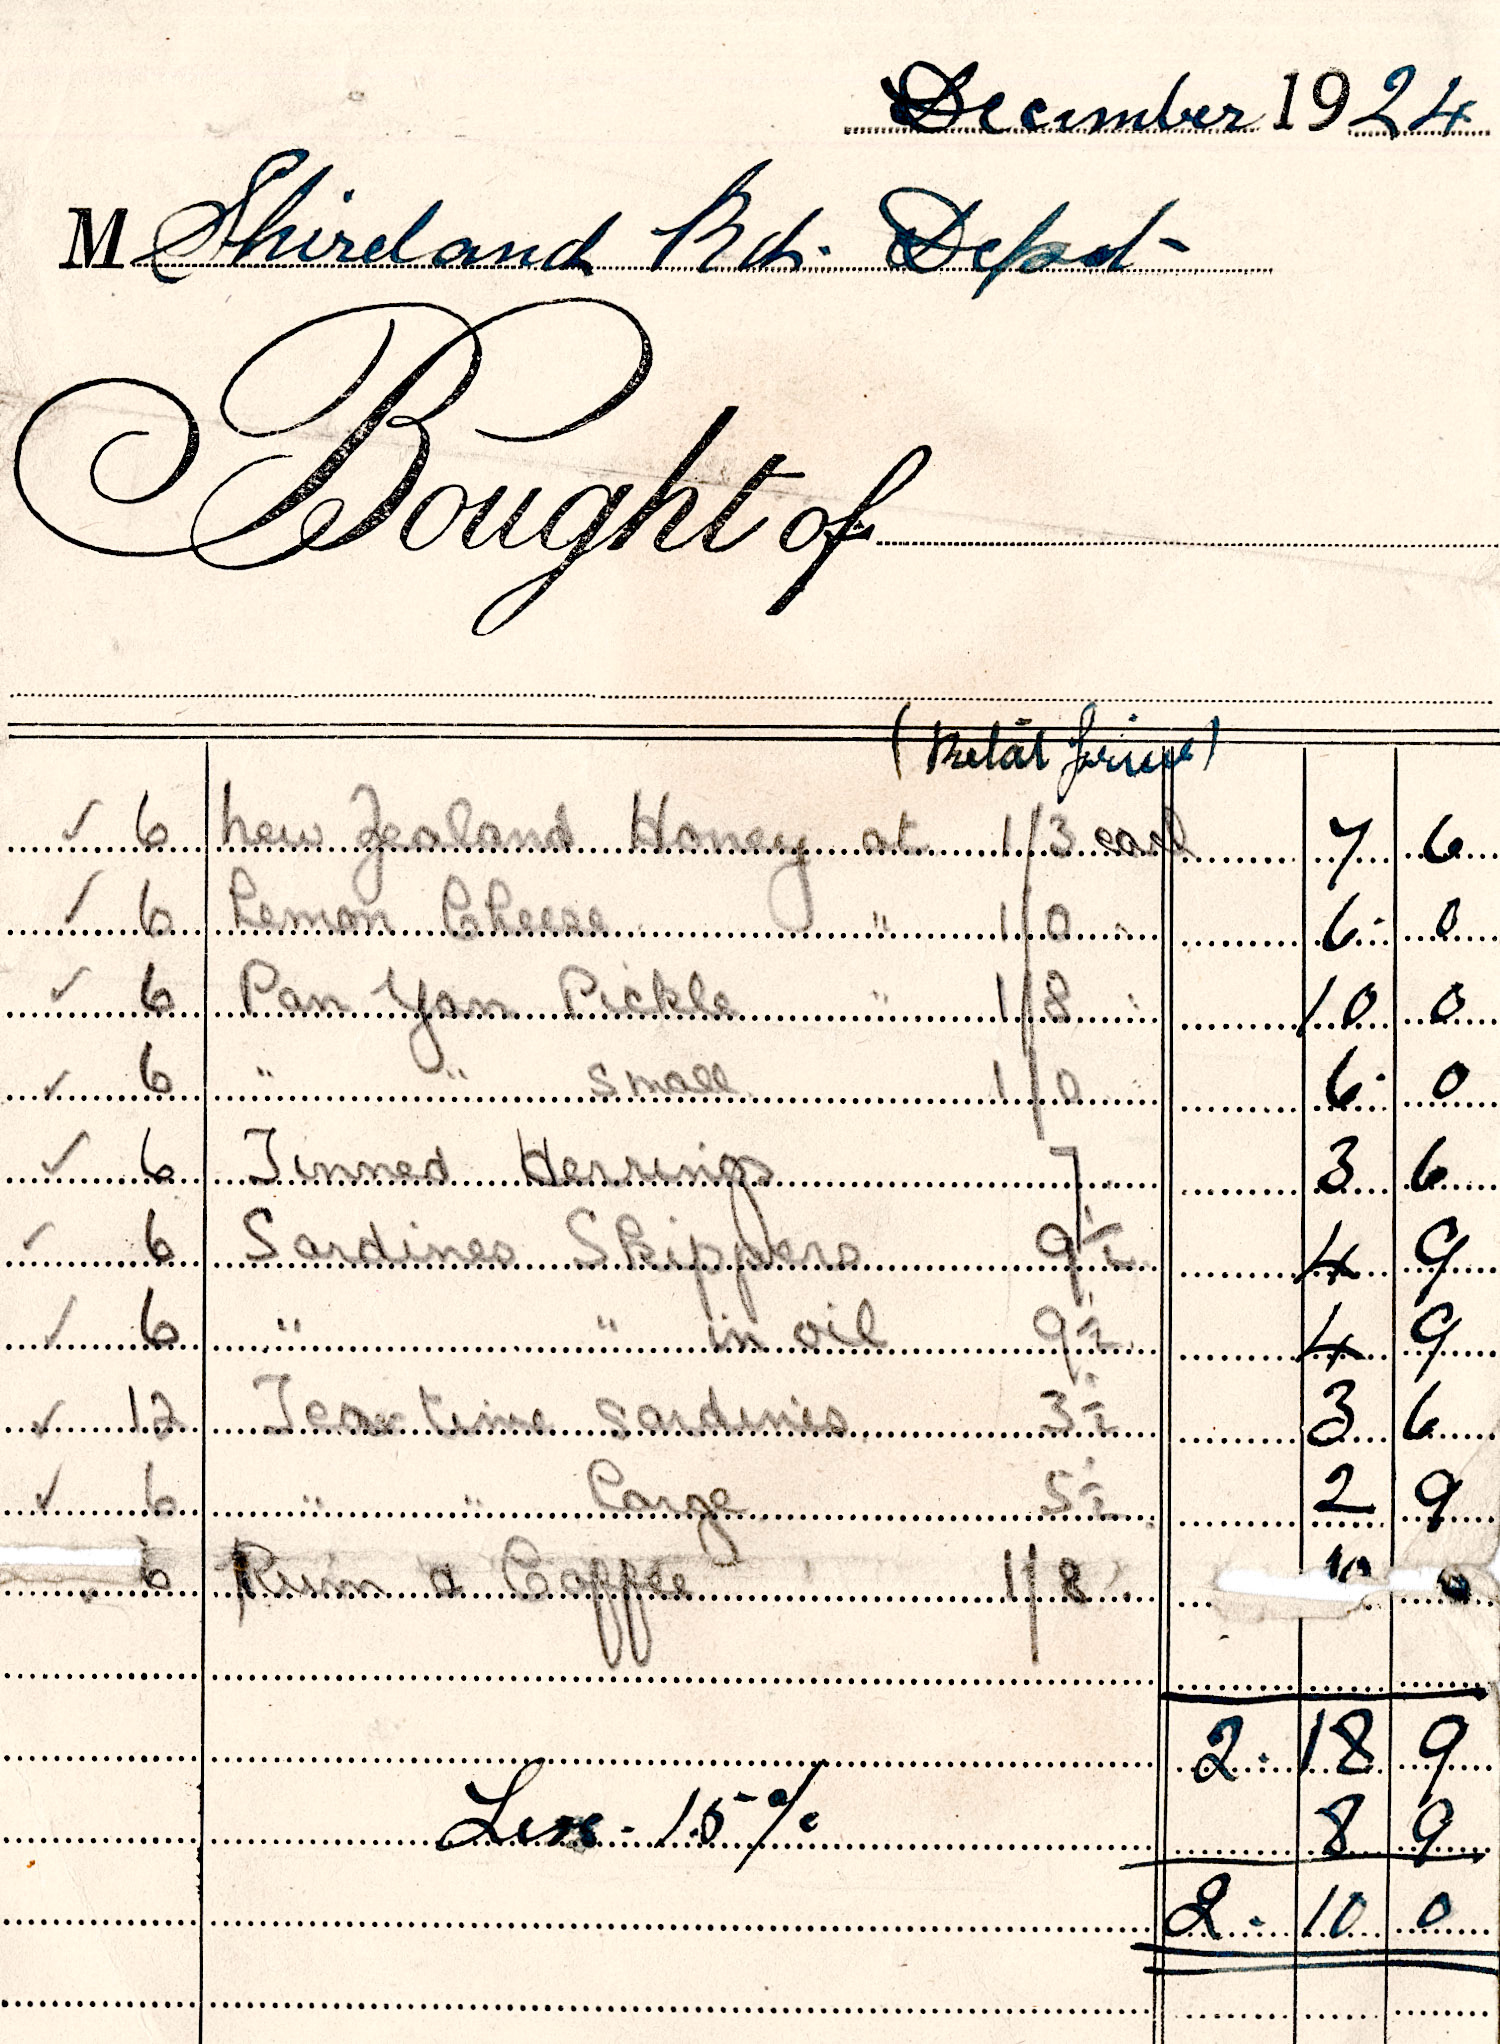 December 1924
M Shireland Rd. Depot
Bought of
(Retail price)
✓ 6 New Zealand Honey at 1/3 each 7 6
✓ 6 Lemon Cheese " 1/0 " 6 0
✓ 6 Pan Yan Pickle " 1/8 " 10 0
✓ 6 " " small 1/0 " 6 0
✓ 6 Tinned Herrings 7 3 6
✓ 6 Sardines Skippers 9½ 4 9
✓ 6 " " in oil 9½ 4 9
✓ 12 Tea time sardines 3½ 3 6
✓ 6 " " Large 5½ 2 9
6 Rum a Coffee 1/8 10 0
2. 18 9
Less. 15% 8 9
2. 10 0